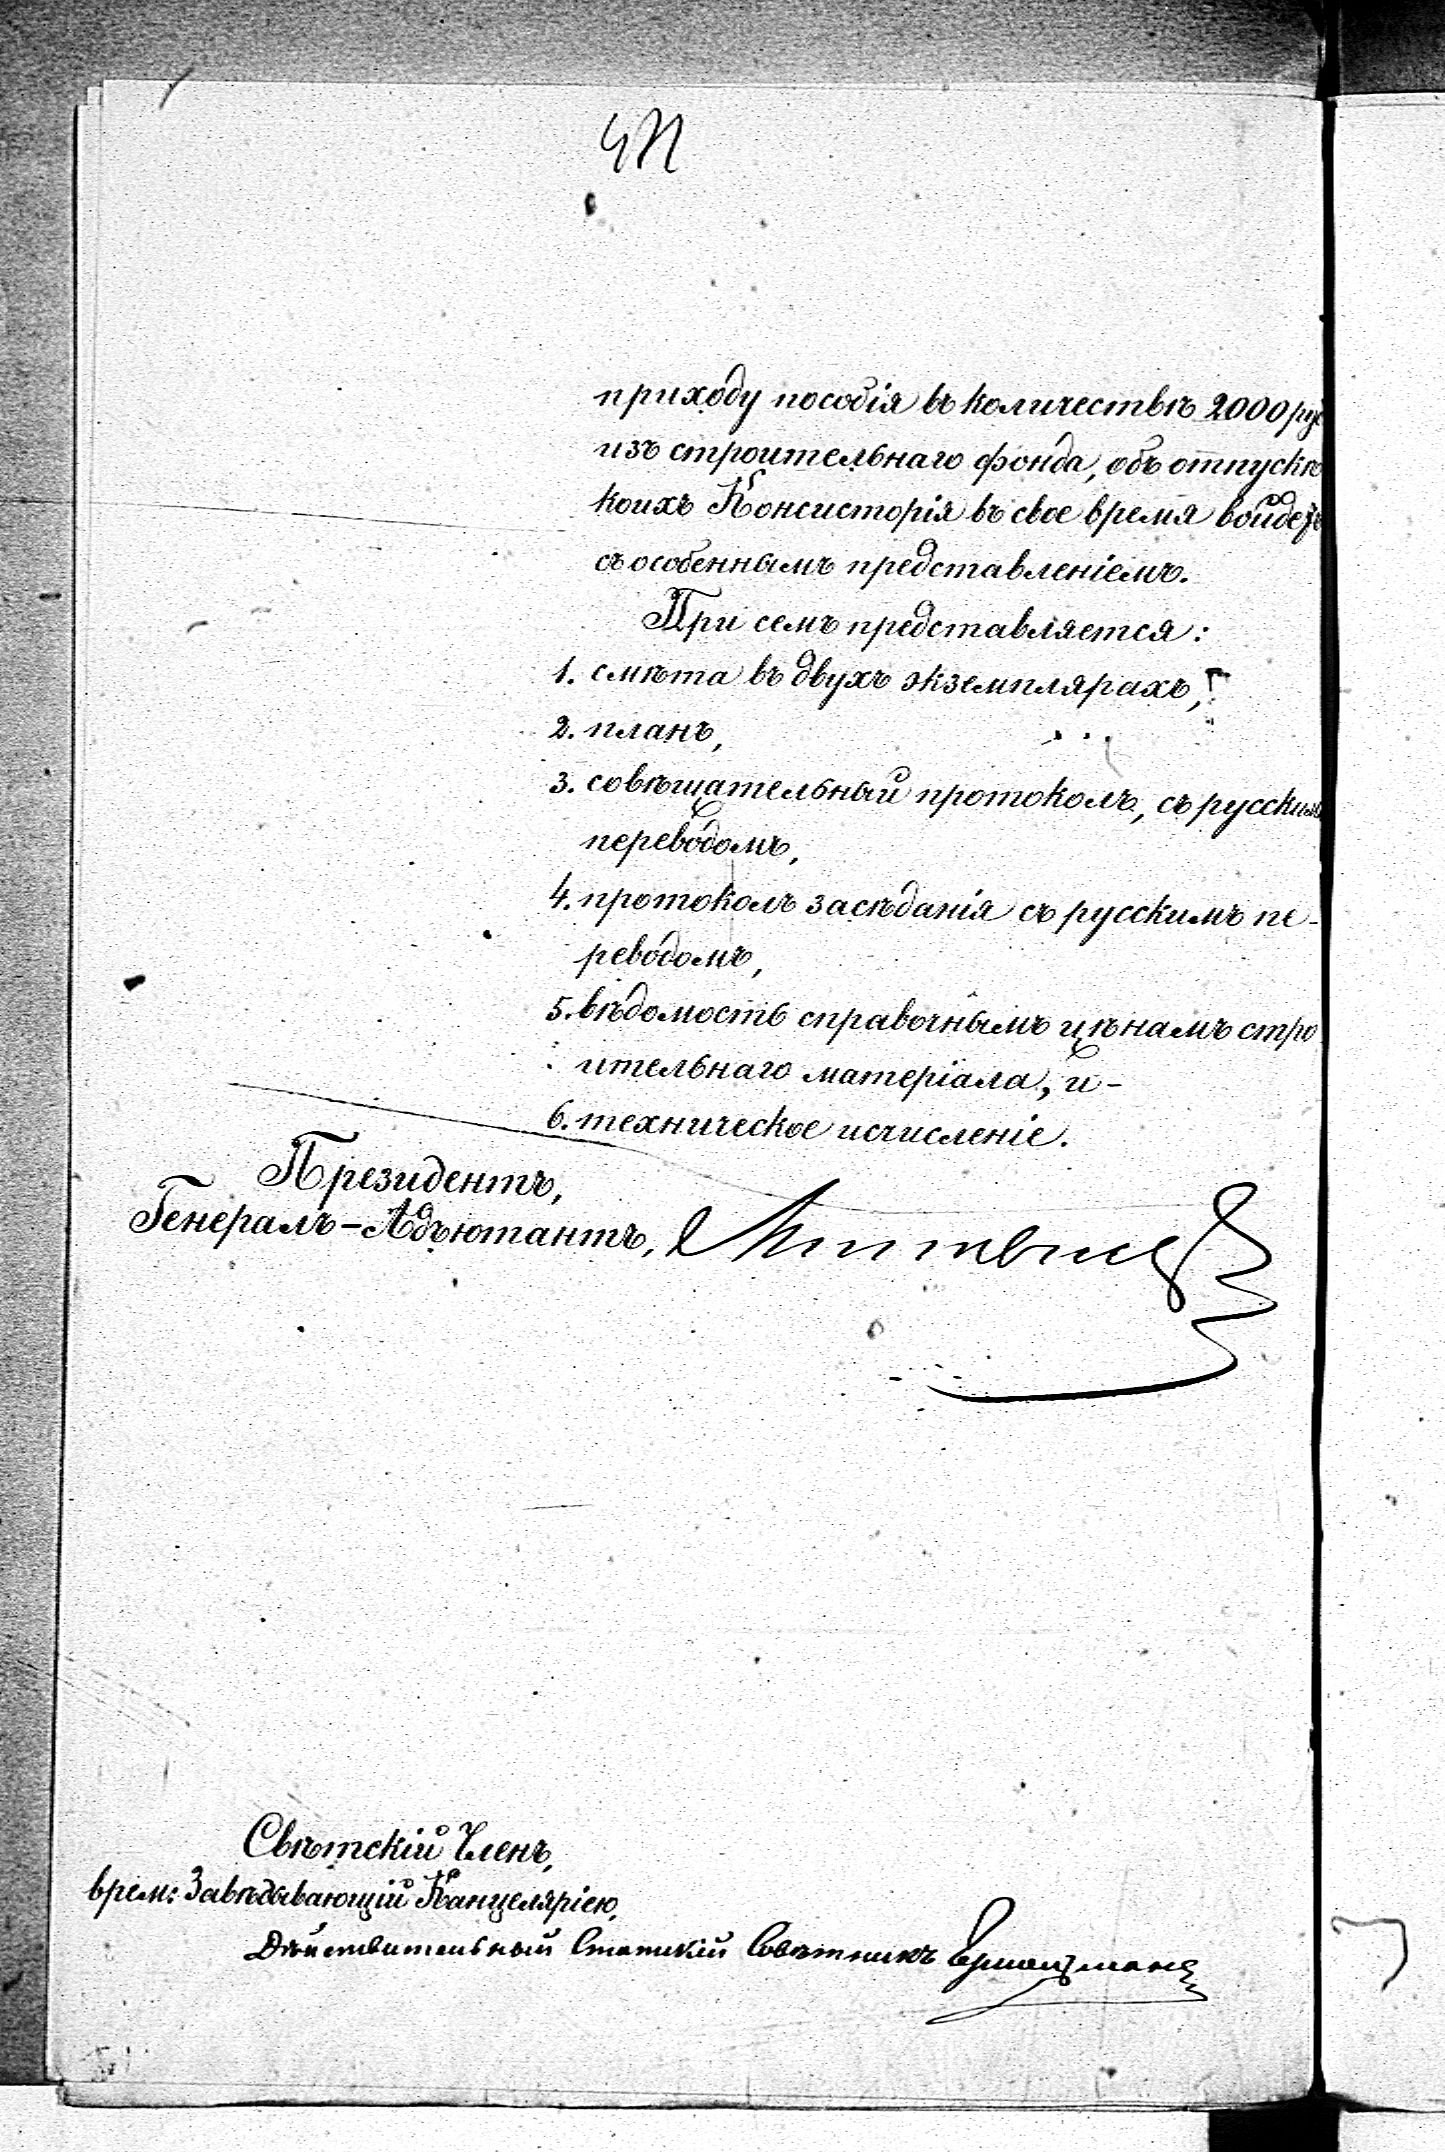 приходу пособія въ количествѣ 2000 руб
изъ строительнаго фонда, объ отпускѣ
коихъ Консисторія въ свое время войдетъ
съ особеннымъ представленіемъ.
При семъ представляется:
1. смѣта въ двухъ экземплярахъ,
2. планъ,
3. совѣщательный протоколъ, съ русскимъ
переводомъ,
4. протоколъ засѣданія съ русскимъ пе-
реводомъ,
5. вѣдомость справочнымъ цѣнамъ стро
ительнаго матеріала, и -
6. техническое исчисленіе.
Президентъ,
Генералъ-Адъютантъ,
Свѣтскій Членъ,
врем: Завѣдывающій Канцеляріею,
Дѣйствительный Статскій Совѣтникъ